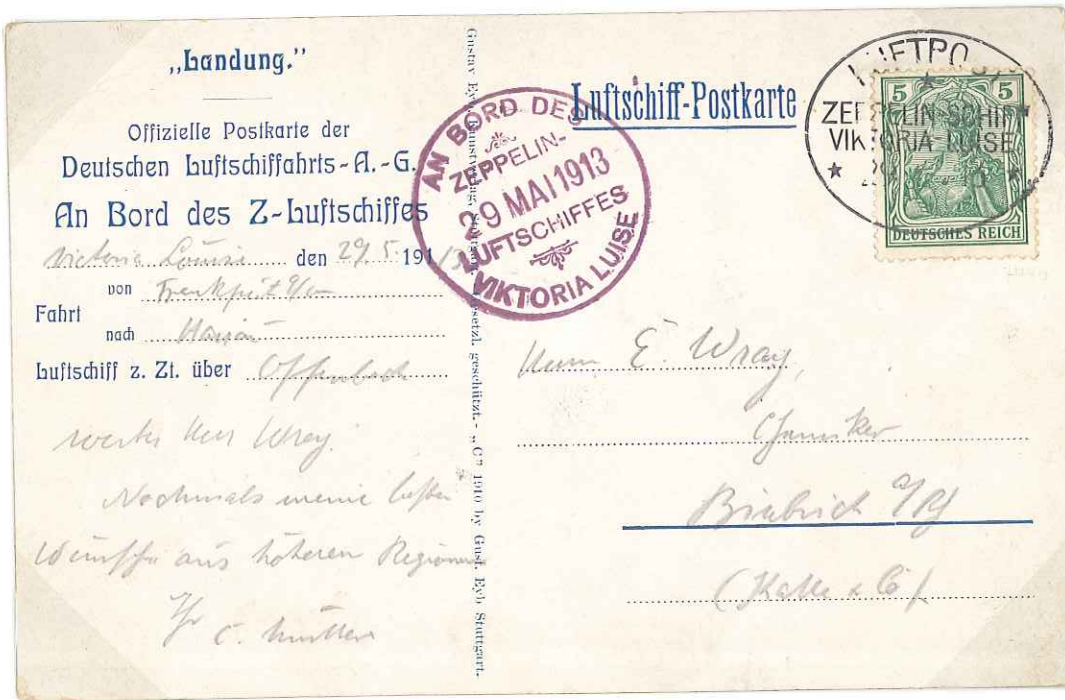 „Landung.”
Offizielle Postkarte der
Deutschen Luftschiffahrts-A.-G.
An Bord des Z-Luftschiffes
Victoria Louise den 29.5. 1913
von Frankfurt a/m
Fahrt
nach Hanau
Luftschiff z. Zt. über Offenbach
werter Herr Wray.
Nochmals meine besten
Wünsche aus höheren Regionen
Ihr C. Müller
Gustav Eyb, Kunstverlag, Stuttgart. gesetzl. geschützt. - „C” 1910 by Gust. Eyb Stuttgart.
AN BORD DES
ZEPPELIN-
29 MAI 1913
LUFTSCHIFFES
VIKTORIA LUISE
Luftschiff-Postkarte
LUFTPOST
ZEPPELIN-SCHIFF
VIKTORIA LUISE
5 5
DEUTSCHES REICH
Herrn E. Wray,
Chemiker
Biebrich a/Rh
(Kalle & Co)